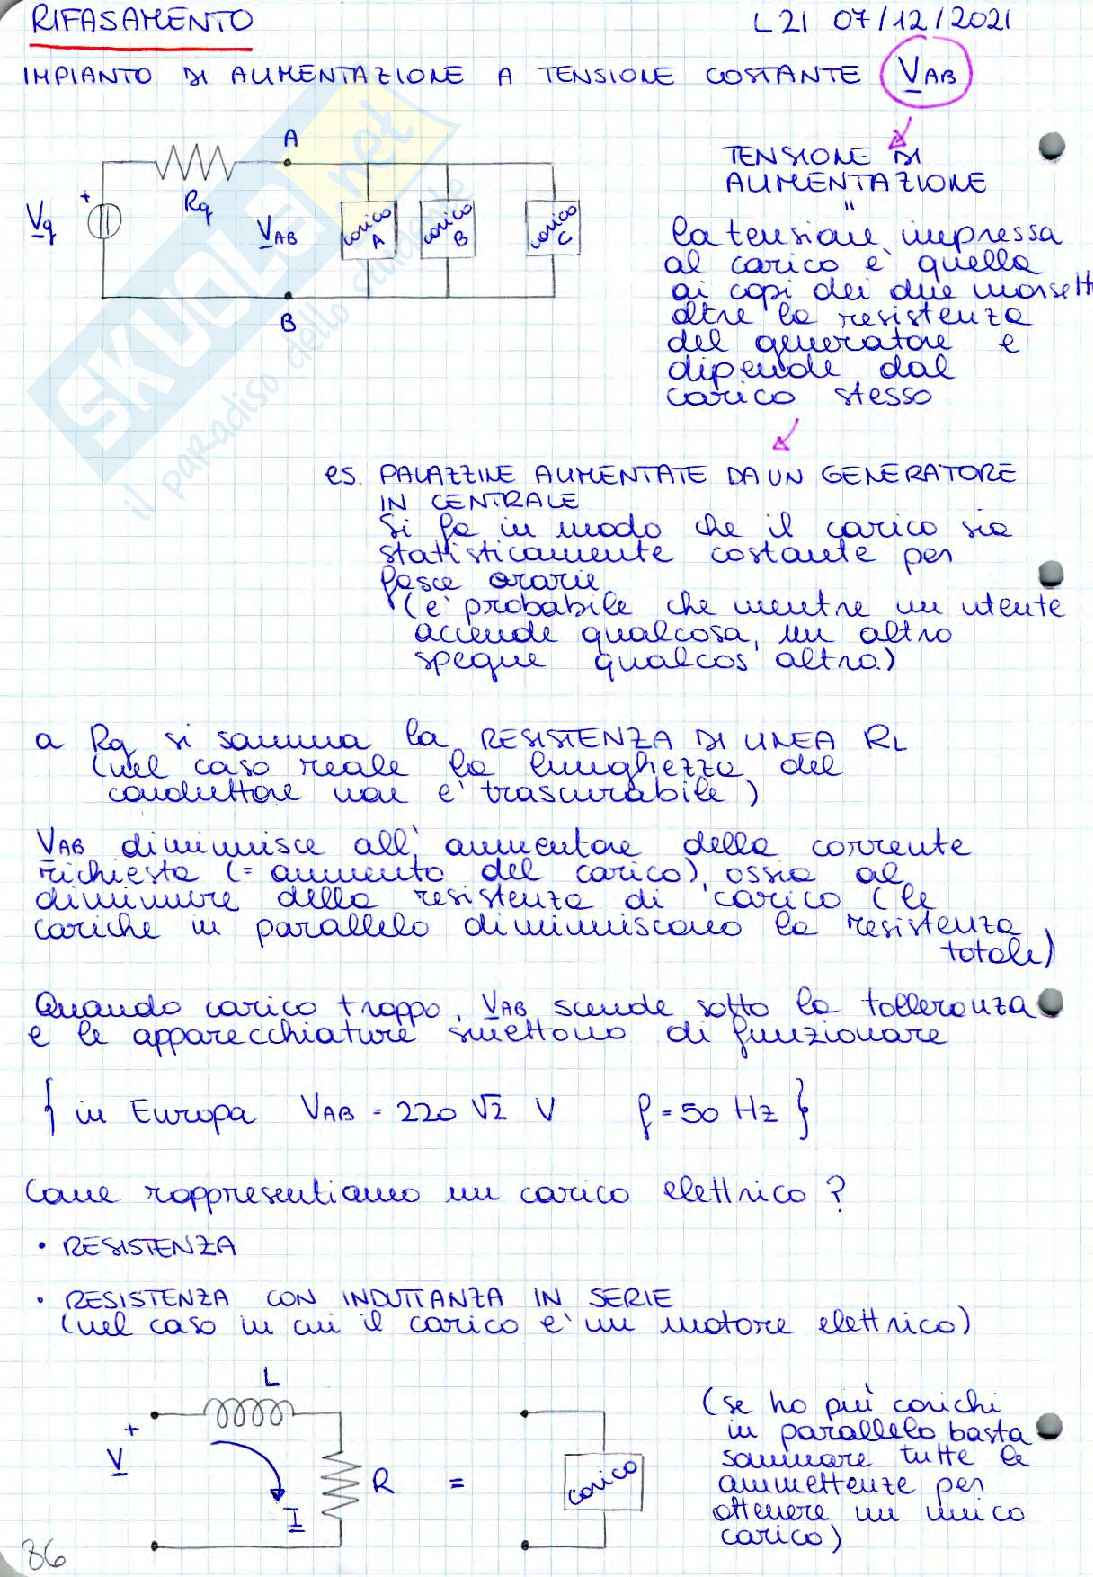 RIFASAMENTO L21 07/12/2021
IMPIANTO DI ALIMENTAZIONE A TENSIONE COSTANTE VAB
A
Rg
Vg
+
VAB
carico A
carico B
carico C
B
TENSIONE DI
ALIMENTAZIONE
"
la tensione impressa
al carico è quella
ai capi dei due morsett
oltre la resistenza
del generatore e
dipende dal
carico stesso
es. PALAZZINE ALIMENTATE DA UN GENERATORE
IN CENTRALE
Si fa in modo che il carico sia
statisticamente costante per
fasce orarie
(è probabile che mentre un utente
accende qualcosa, un altro
spegne qualcos'altro)
a Rg si somma la RESISTENZA DI LINEA RL
(nel caso reale la lunghezza del
conduttore non è trascurabile)
VAB diminuisce all'aumentare della corrente
richiesta (= aumento del carico), ossia al
diminuire della resistenza di carico (le
cariche in parallelo diminuiscono la resistenza
totale)
Quando carico troppo, VAB scende sotto la tolleranza
e le apparecchiature smettono di funzionare
{ in Europa VAB = 220 √2 V f = 50 Hz }
Come rappresentiamo un carico elettrico?
• RESISTENZA
• RESISTENZA CON INDUTTANZA IN SERIE
(nel caso in cui il carico è un motore elettrico)
L
+
V
I
R
=
carico
(se ho più carichi
in parallelo basta
sommare tutte le
ammettenze per
ottenere un unico
carico)
86
SKUOLA.net
il paradiso dello studente